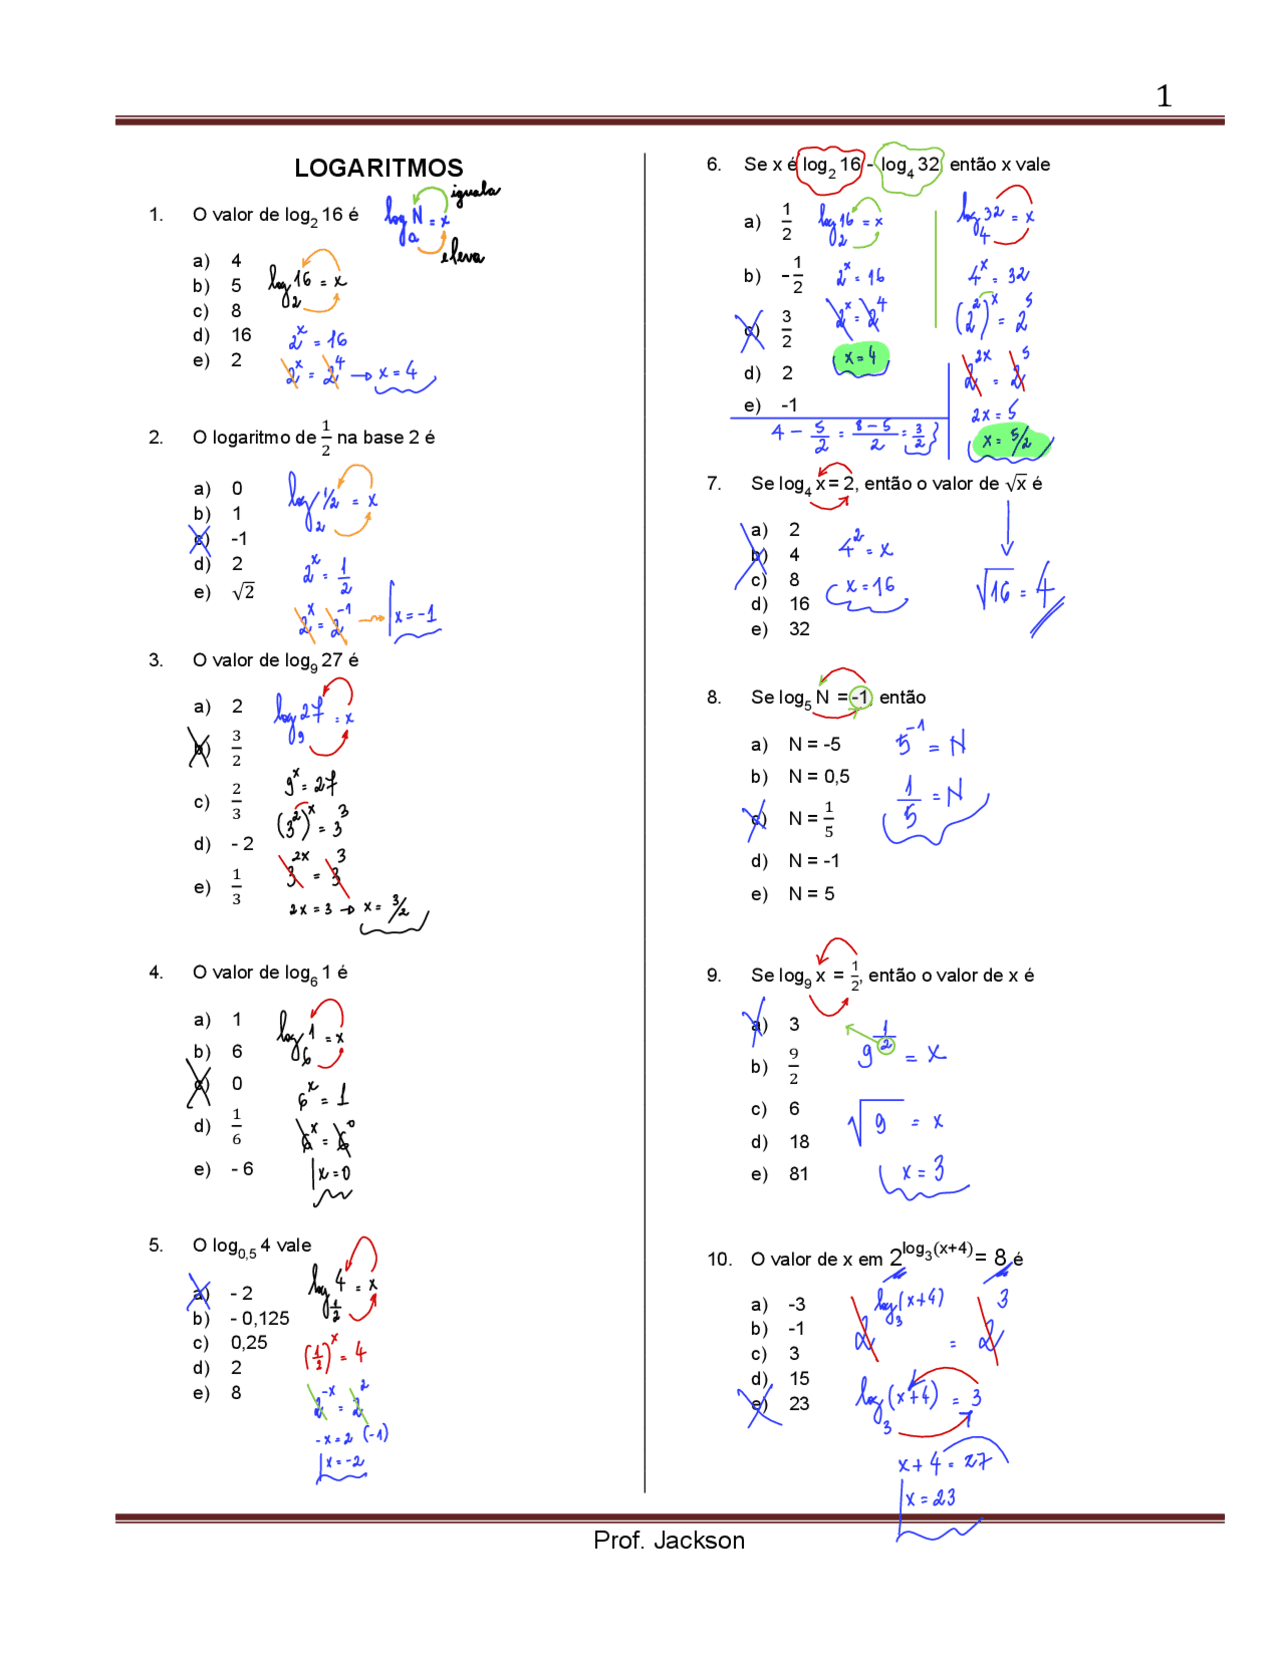 1
LOGARITMOS
1. O valor de log₂ 16 é
log_a N = x
iguala
eleva
a) 4
b) 5
c) 8
d) 16
e) 2
log₂ 16 = x
2^x = 16
2^x = 2^4 → x = 4
2. O logaritmo de 1/2 na base 2 é
a) 0
b) 1
c) -1
d) 2
e) √2
log₂ 1/2 = x
2^x = 1/2
2^x = 2^-1 → x = -1
3. O valor de log₉ 27 é
a) 2
b) 3/2
c) 2/3
d) - 2
e) 1/3
log₉ 27 = x
9^x = 27
(3^2)^x = 3^3
3^2x = 3^3
2x = 3 → x = 3/2
4. O valor de log₆ 1 é
a) 1
b) 6
c) 0
d) 1/6
e) - 6
log₆ 1 = x
6^x = 1
6^x = 6^0
x = 0
5. O log₀,₅ 4 vale
a) - 2
b) - 0,125
c) 0,25
d) 2
e) 8
log_1/2 4 = x
(1/2)^x = 4
2^-x = 2^2
-x = 2 (-1)
x = -2
6. Se x é log₂ 16 - log₄ 32 então x vale
a) 1/2
b) -1/2
c) 3/2
d) 2
e) -1
log₂ 16 = x
2^x = 16
2^x = 2^4
x = 4
log₄ 32 = x
4^x = 32
(2^2)^x = 2^5
2^2x = 2^5
2x = 5
x = 5/2
4 - 5/2 = 8-5/2 = 3/2
7. Se log₄ x = 2, então o valor de √x é
a) 2
b) 4
c) 8
d) 16
e) 32
4^2 = x
x = 16
√16 = 4
8. Se log₅ N = -1, então
a) N = -5
b) N = 0,5
c) N = 1/5
d) N = -1
e) N = 5
5^-1 = N
1/5 = N
9. Se log₉ x = 1/2, então o valor de x é
a) 3
b) 9/2
c) 6
d) 18
e) 81
9^1/2 = x
√9 = x
x = 3
10. O valor de x em 2^log₃(x+4) = 8 é
a) -3
b) -1
c) 3
d) 15
e) 23
2^log₃(x+4) = 2^3
log₃(x+4) = 3
x + 4 = 27
x = 23
Prof. Jackson